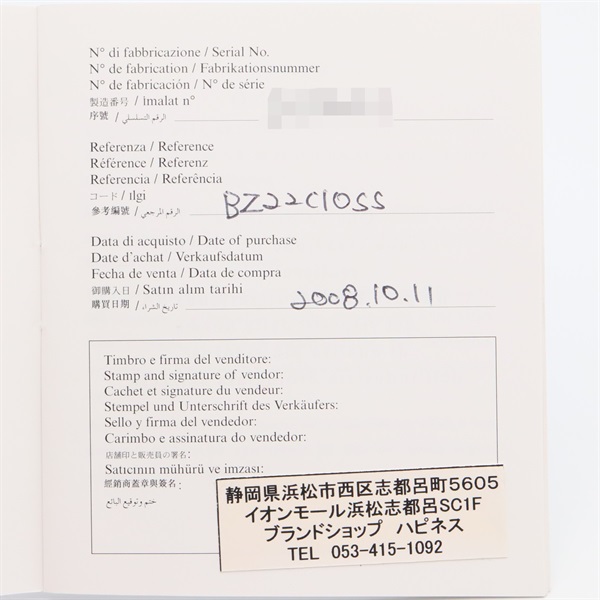 N° di fabbricazione / Serial No.
N° de fabrication / Fabrikationsnummer
N° de fabricación / N° de série
製造番号 / İmalat n°
序號 / الرقم التسلسلي
Referenza / Reference
Référence / Referenz
Referencia / Referência
コード / Ilgi
参考編號 / الرقم المرجعي
BZ22C10SS
Data di acquisto / Date of purchase
Date d'achat / Verkaufsdatum
Fecha de venta / Data de compra
御購入日 / Satın alım tarihi
購買日期 / تاريخ الشراء
2008.10.11
Timbro e firma del venditore:
Stamp and signature of vendor:
Cachet et signature du vendeur:
Stempel und Unterschrift des Verkäufers:
Sello y firma del vendedor:
Carimbo e assinatura do vendedor:
店舗印と販売員の署名:
Satıcının mühürü ve imzası:
經銷商蓋章與簽名:
ختم وتوقيع البائع:
静岡県浜松市西区志都呂町5605
イオンモール浜松志都呂SC1F
ブランドショップ ハピネス
TEL 053-415-1092